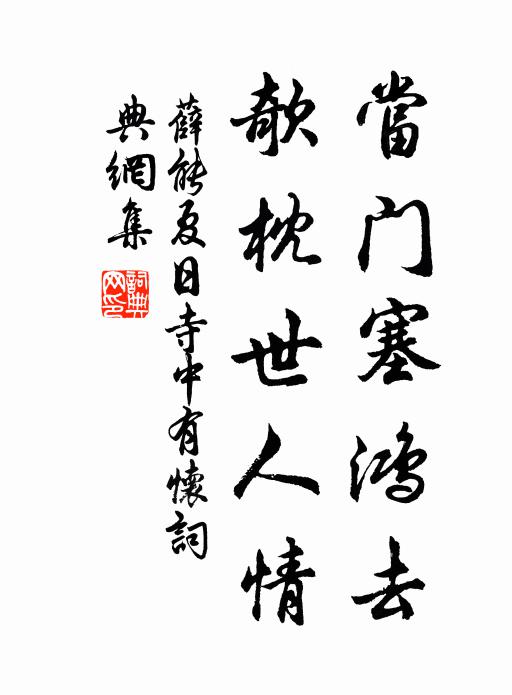 當門塞鴻去
欹枕世人情
薛能夏日寺中有懷詞
典網集
詞典网印